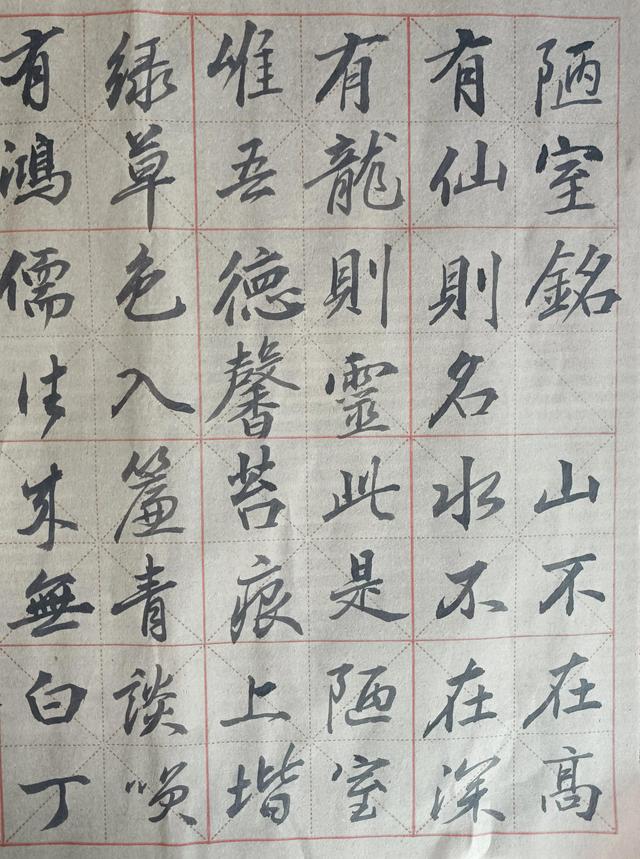 陋室銘 山不在高
有仙則名水不在深
有龍則靈此是陋室
惟吾德馨苔痕上堦
绿草色入簾青談咲
有鴻儒往来無白丁